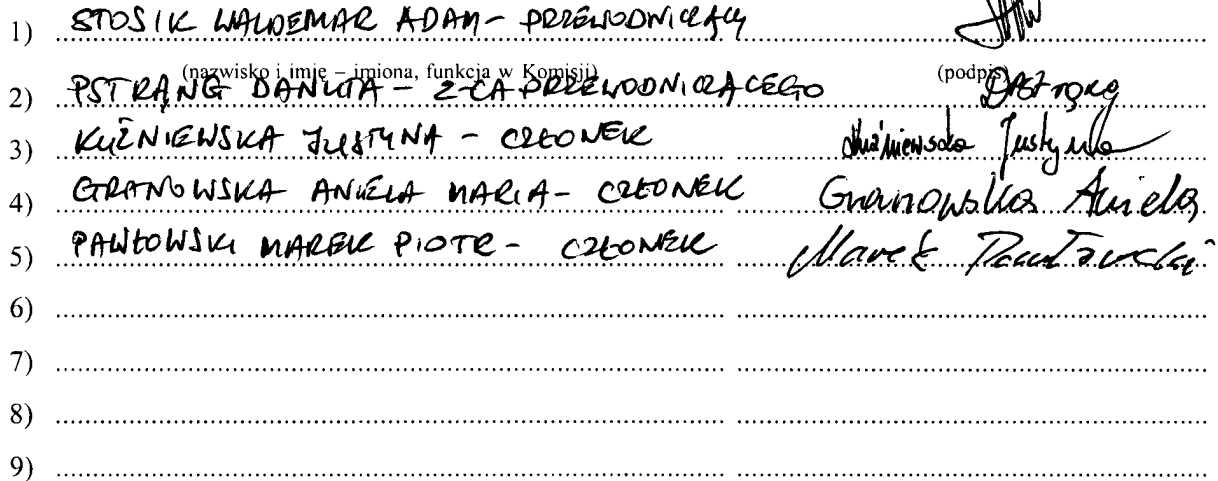 1) STOSIK WALDEMAR ADAM - PRZEWODNICZĄCY
(nazwisko i imię – imiona, funkcja w Komisji) (podpis)
2) PSTRĄNG DANUTA - Z-CA PRZEWODNICZĄCEGO DPstrąng
3) KUŹNIEWSKA JUSTYNA - CZŁONEK Kuźniewska Justyna
4) GRANOWSKA ANIELA MARIA - CZŁONEK Granowska Aniela
5) PAWŁOWSKI MAREK PIOTR - CZŁONEK Marek Pawłowski
6)
7)
8)
9)